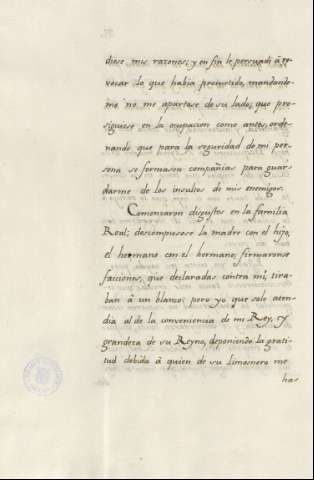 diese mis razones; y en fin le persuadí á re-
vocar lo que habia prometido, mandando-
me no me apartase de su lado; que pro-
siguiese en la ocupacion como antes, orde-
nando que para la seguridad de mi per-
sona se formasen compañias para guar-
darme de los insultos de mis enemigos.
Comenzaron disgustos en la familia
Real; descompusose la madre con el hijo,
el hermano con el hermano, firmaronse
facciones, que declaradas contra mi, tira-
ban á un blanco; pero yo que solo aten-
dia al de la conveniencia de mi Rey, y
grandeza de su Reyno, deponiendo la grati-
tud debida á quien de su limosnero me
ha-